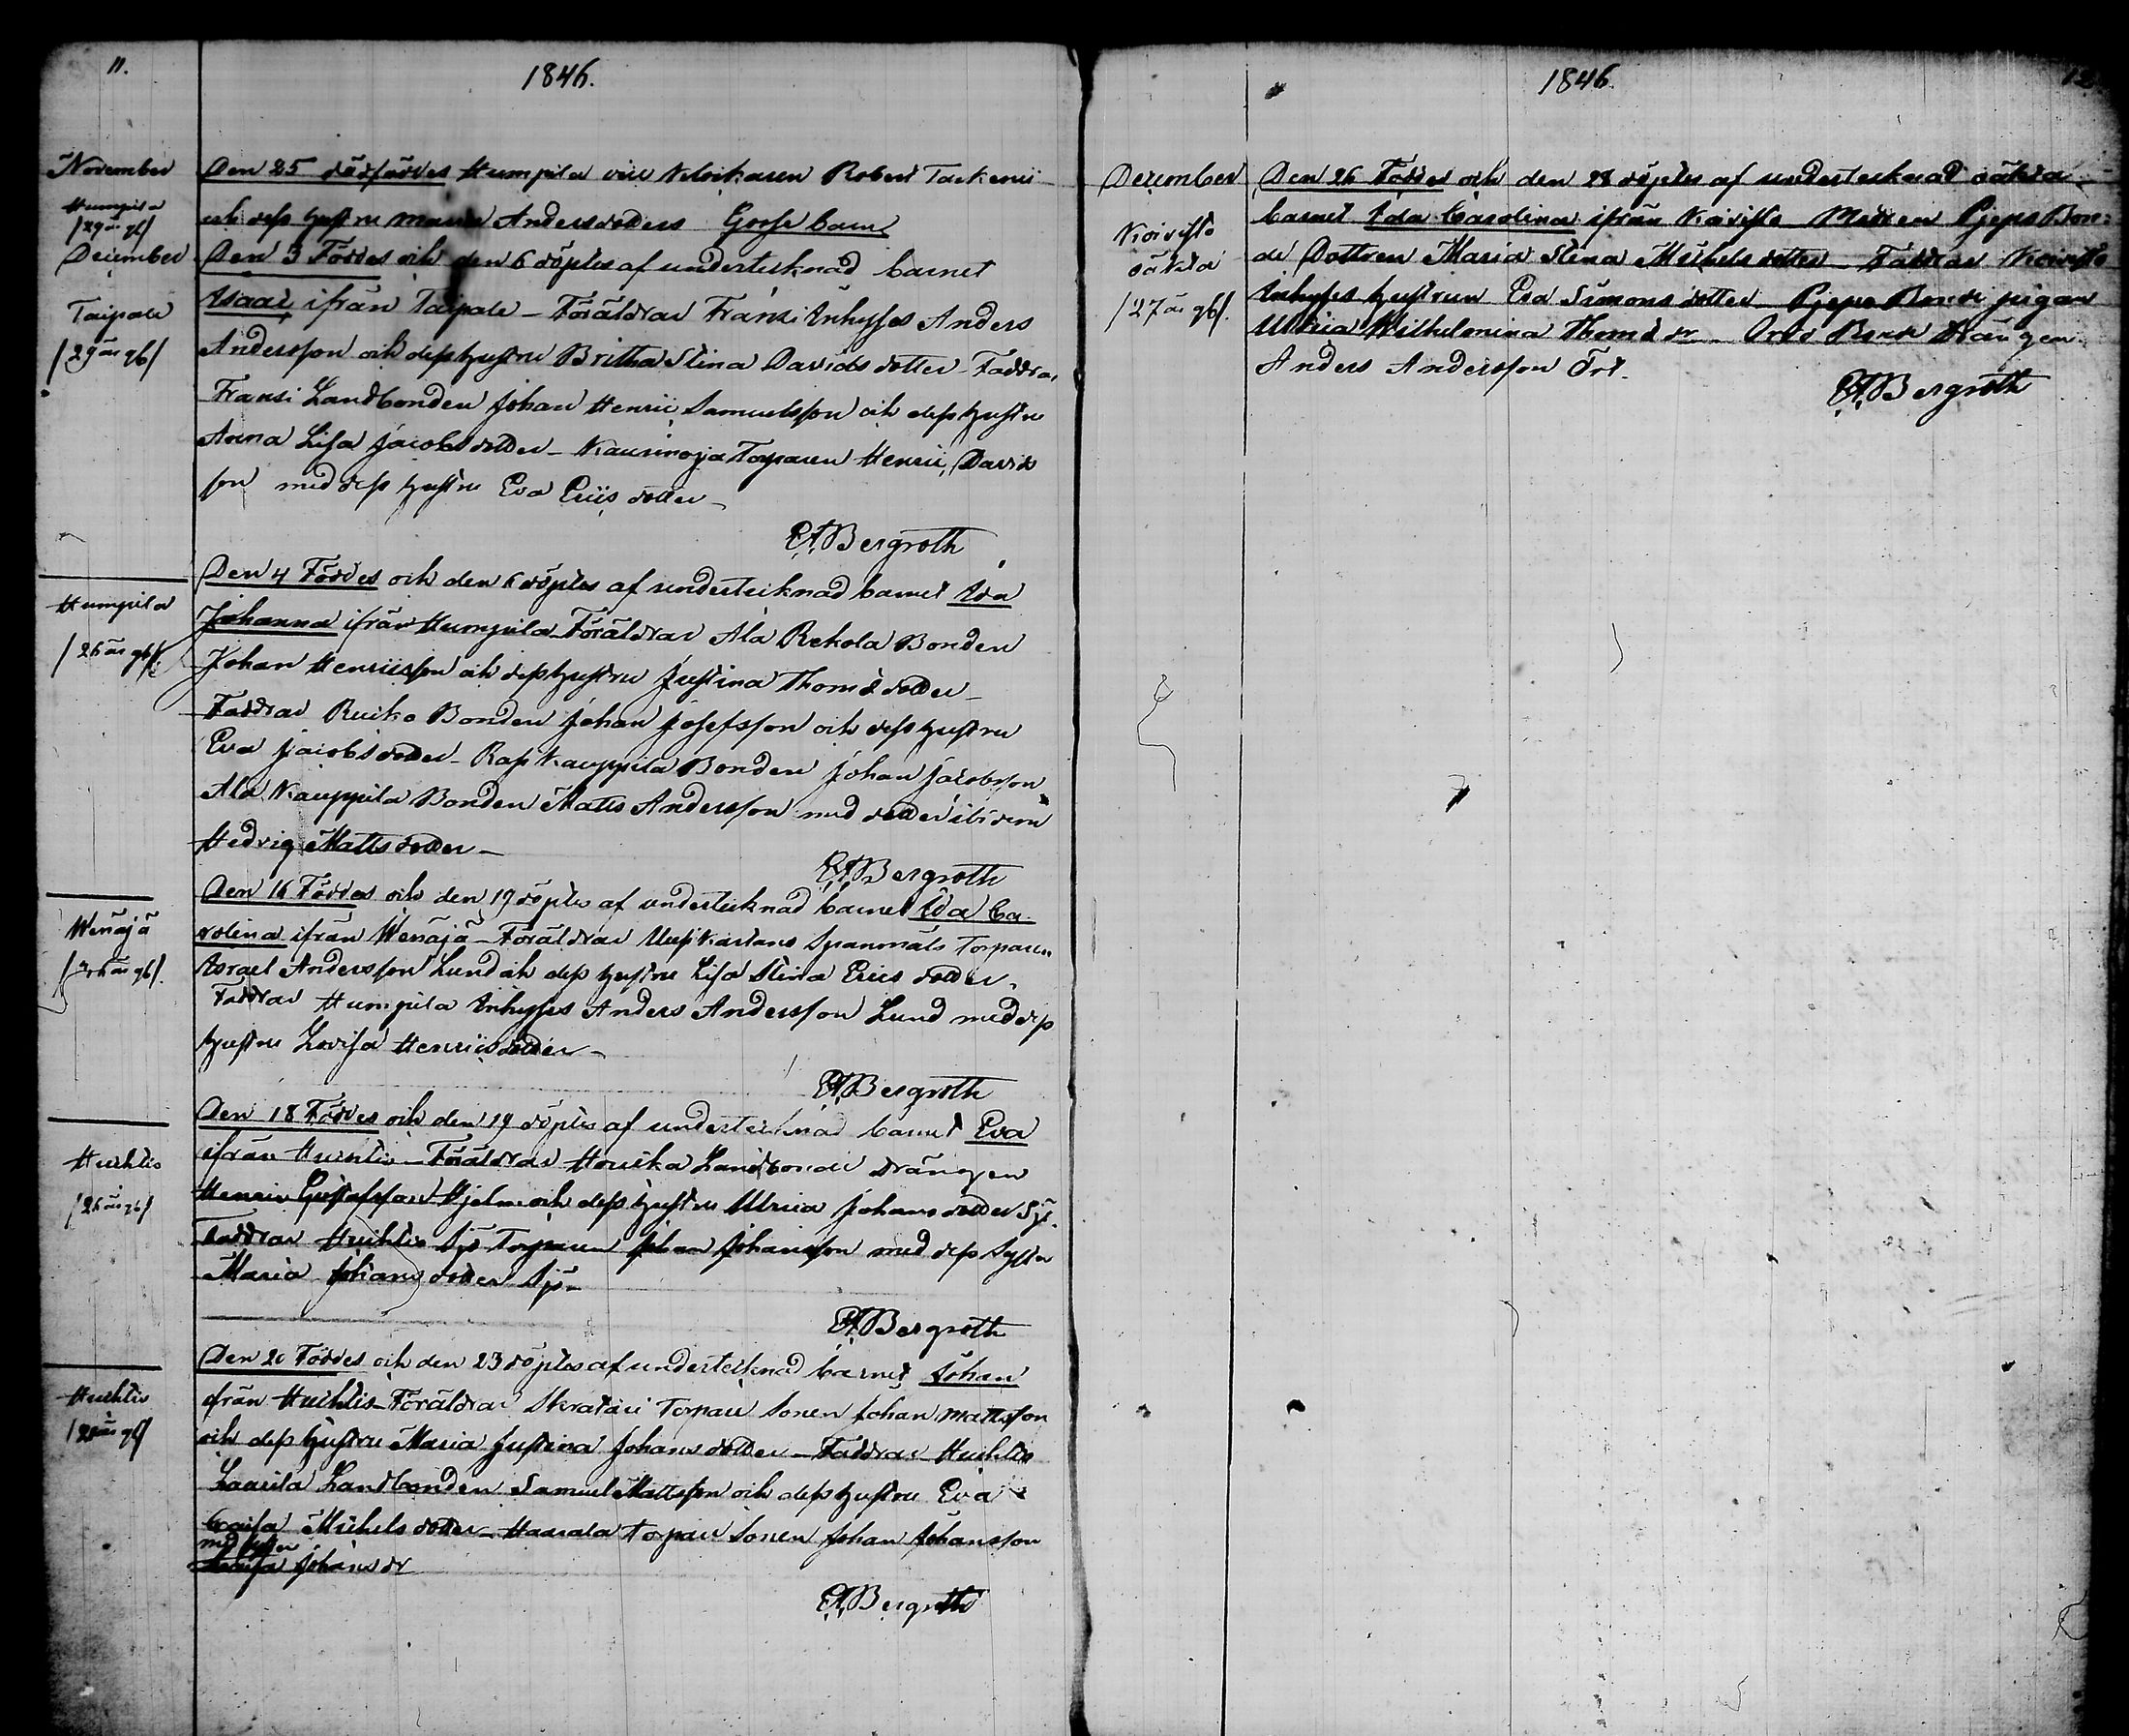 11.
1846.
November
Den 25 dödföddes Humpila
Robert
Humpila
/29 år gl/
och dess hustru Maria Andersdotters Gosse barn
December
Den 3 Föddes och den 6 döptes af undertecknad barnet
Taipale
/29 år gl/
Isaac, ifrån Taipale – Föräldrar Fransi Inhyses Anders
Andersson och dess hustru Britha Stina Davids dotter – Faddrar
Fransi Landbonden Johan Henric Samuelsson och dess hustru
Anna Lisa Jacobsdotter – Torparen Henric David
son med dess hustru Eva Erics dotter –
EABergroth
Den 4 Föddes och den 6 döptes af undertecknad barnet Ida
Humpila
/26 år gl/
Johanna ifrån Humpila – Föräldrar Ala Rekola Bonden
Johan Henricsson och dess hustru Justina Thomæ dotter –
Faddrar Bonden Johan Josefsson och dess hustru
Eva Jacobsdotter – Kauppila Bonden Johan Jacobsson
Ala Kauppila Bonden Matts Andersson med dotter ibidem
Hedvig Mattsdotter –
EABergroth
Den 16 Föddes och den 19 döptes af undertecknad barnet Ida Ca
Wenäjä
rolina ifrån Wenäjä – Föräldrar Torparen
Israel Andersson Lund och dess hustru Lisa Stina Erics dotter.
Faddrar Humpila Inhyses Anders Andersson Lund med dess
hustru Lovisa Henricsdotter –
EABergroth
Den 18 Föddes och den 19 döptes af undertecknad barnet Eva
Huhtis
/26 år gl/
ifrån Huhtis – Föräldrar Landbonde Drängen
Henric Gustafsson Hjelm och dess hustru Ulrica Johans dotter
Faddrar Huhtis Torparen Johan Johansson med dess Syster
Maria Johans dotter
EABergroth
Den 20 Föddes och den 23 döptes af undertecknad barnet Johan
Huhtis
ifrån Huhtis – Föräldrar Torpare Sonen Johan Mattsson
och dess hustru Maria Justina Johans dotter – Faddrar Huhtis
Laurila Landbonden Samuel Mattsson och dess hustru Eva
Caisa Michels dotter – Torpare Sonen Johan Johansson
med syster
Johans dr
EABergroth
1846
12
December
Den 26 Föddes och den 28 döptes af undertecknad oäkta
Koivisto
oäkta
/27 år gl/.
barnet Ida Carolina ifrån Koivisto – Modren Bon:
de Dottren Maria Stina Michels dotter – Faddrar Koivisto
Inhyses hustrun Eva Simons dotter – Bonde pigan
Ulrica Wilhelmina Thomæ dr – Drängen
Anders Andersson
EABergroth